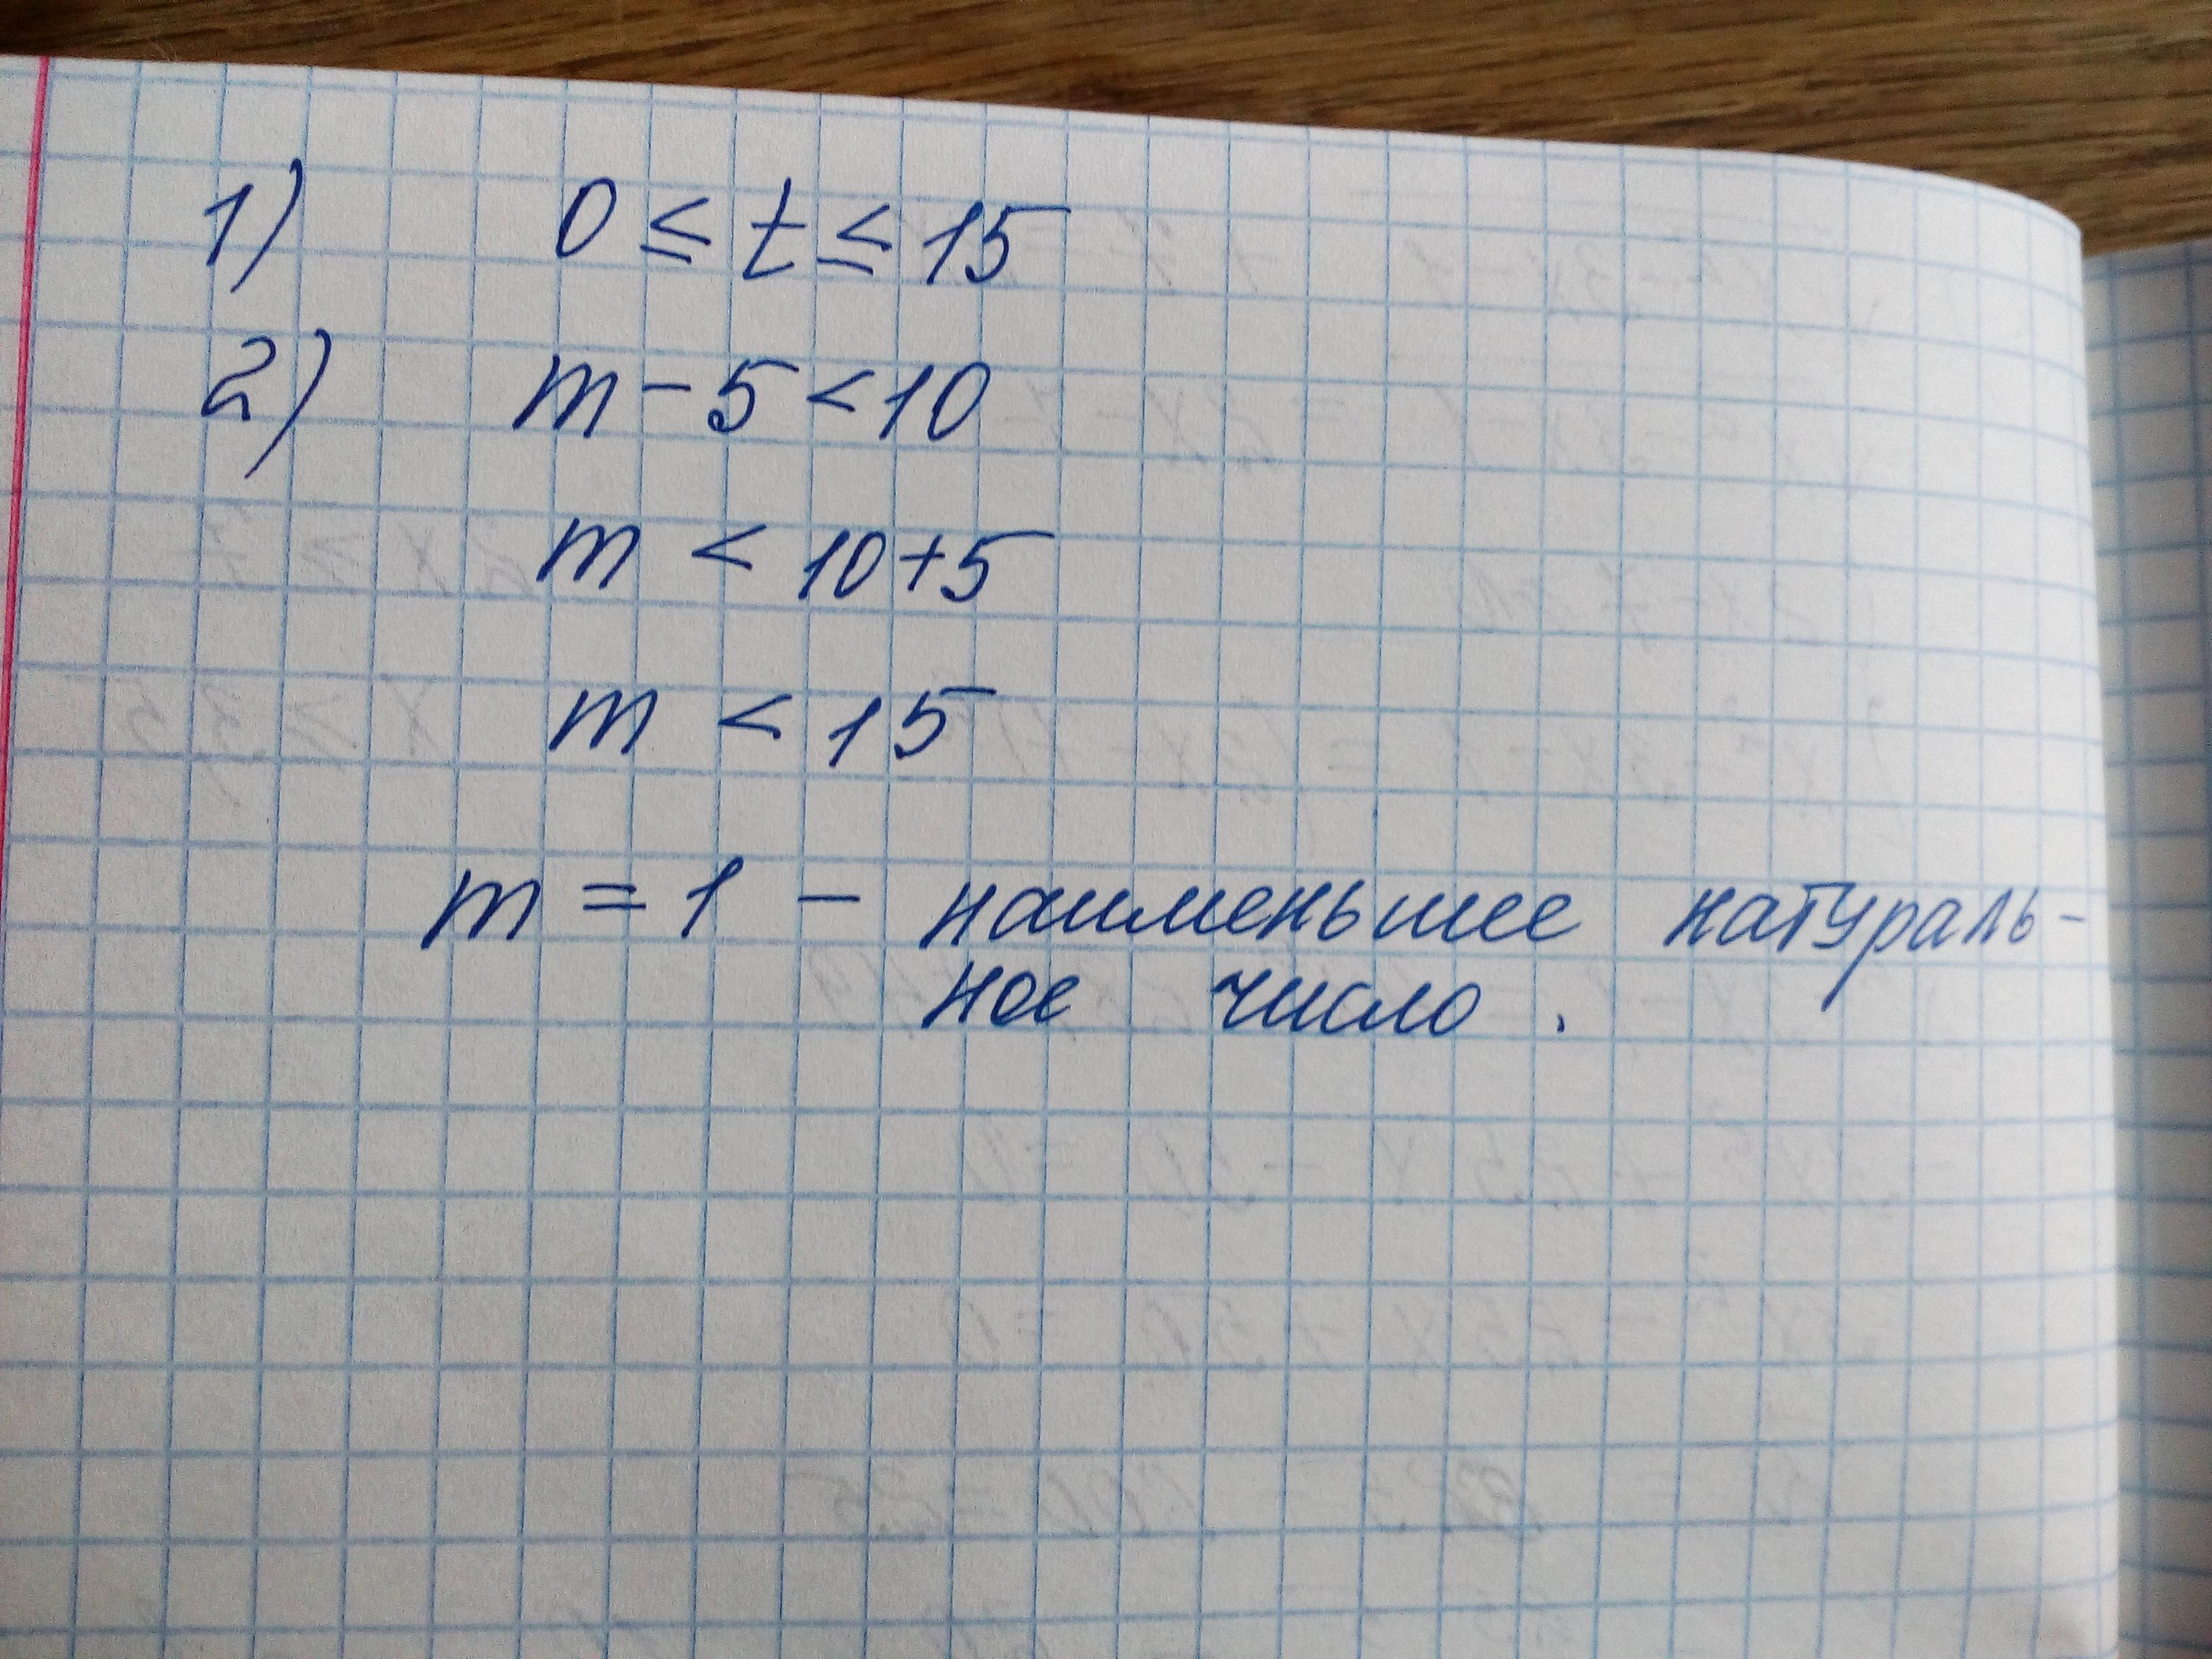 1) 0 ≤ t ≤ 15
2) m - 5 < 10
m < 10+5
m < 15
m = 1 - наименьшее натураль-
ное число.